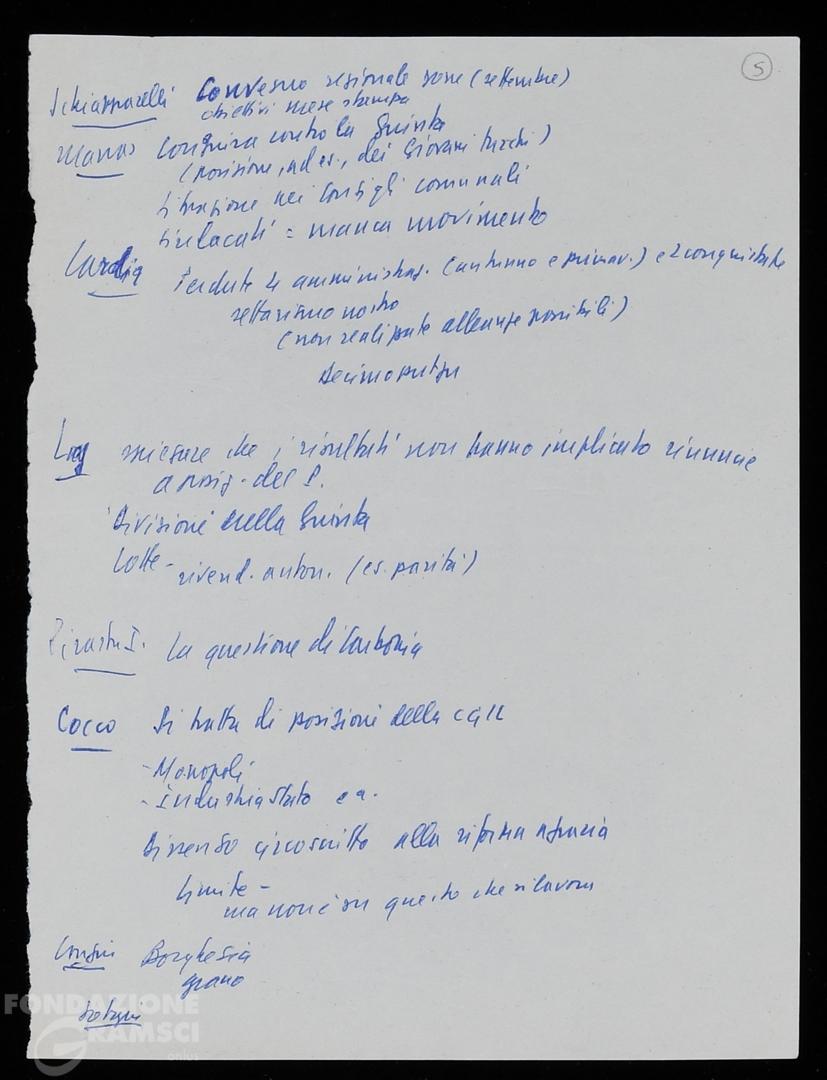 5
Schiapparelli Convegno regionale zone (settembre)
obiettivi mese stampa
Manas Congiura contro la Giunta
(posizione, ad es., dei Giovani turchi)
Situazione nei Consigli comunali
Sindacati = manca movimento
Cardia Perdute 4 amministraz. (autunno e primav.) e 2 conquistate
settarismo nostro
(non realizzate alleanze possibili)
Decimoputzu
Lay spiegare che i risultati non hanno implicato rinuncie
a posiz. del P.
Divisione nella Giunta
Lotte - rivend. auton. (es. parità)
Pirastu I. La questione di Carbonia
Cocco Si tratta di posizioni della CGIL
- Monopoli
- Industria Stato ea.
Dissenso circoscritto alla riforma agraria
Limite -
ma non è su questo che si lavora
Borghesia
grano
FONDAZIONE
GRAMSCI
onlus